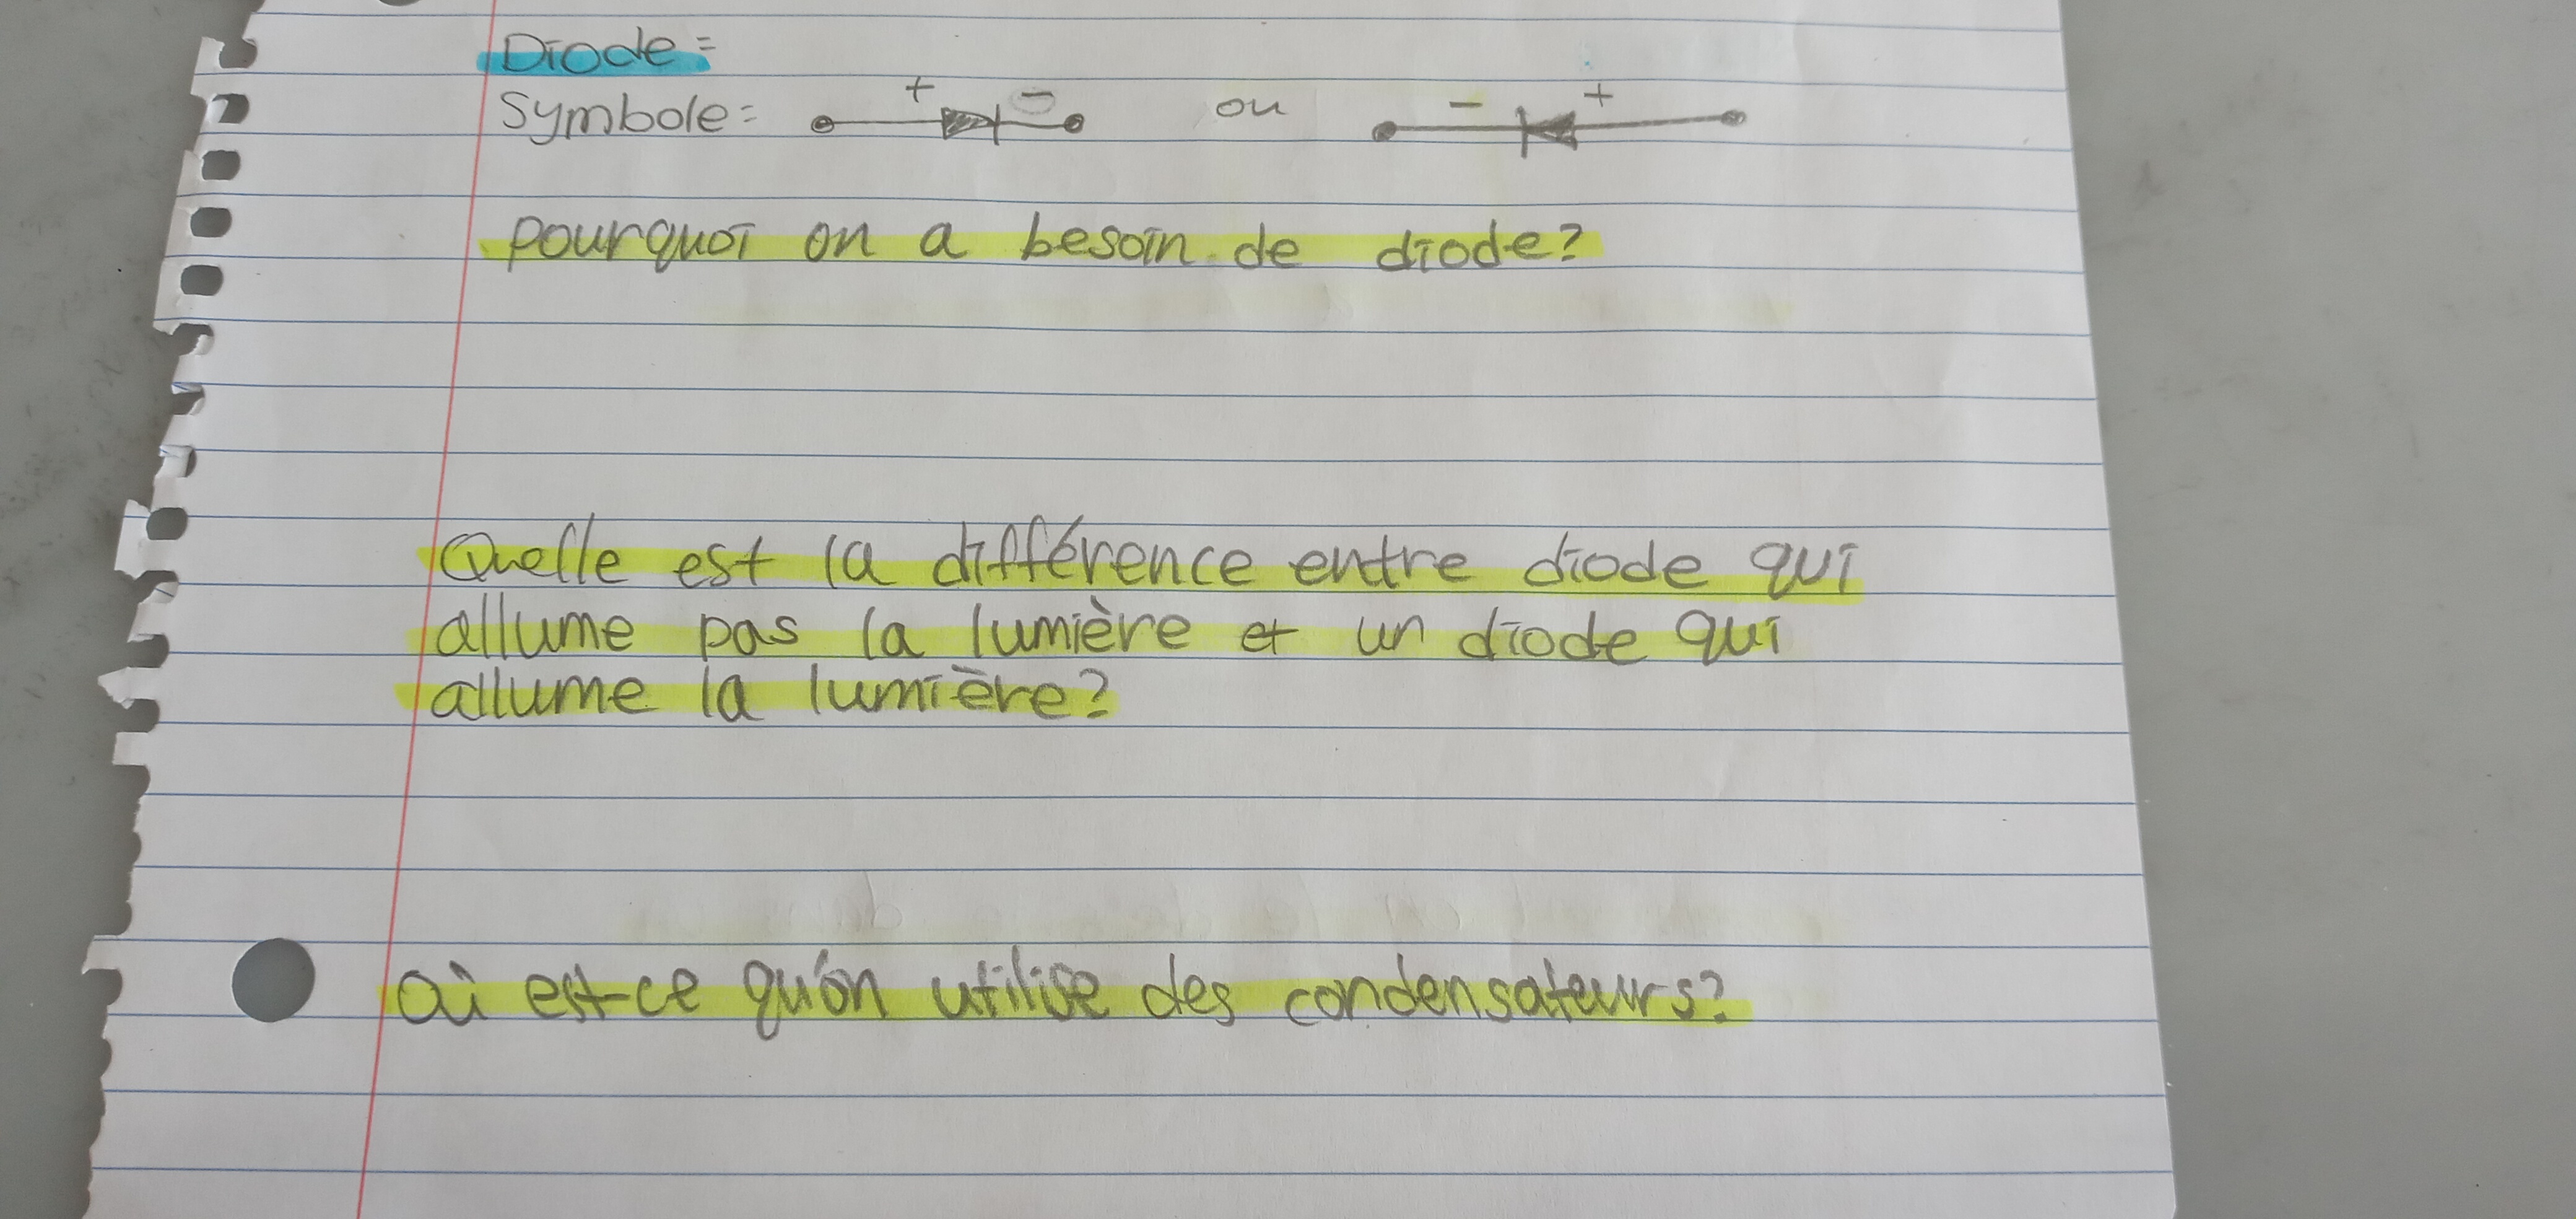 Diode=
Symbole= + - ou - +
pourquoi on a besoin de diode?
Quelle est la différence entre diode qui
allume pas la lumière et un diode qui
allume la lumière?
où est-ce qu'on utilise des condensateurs?